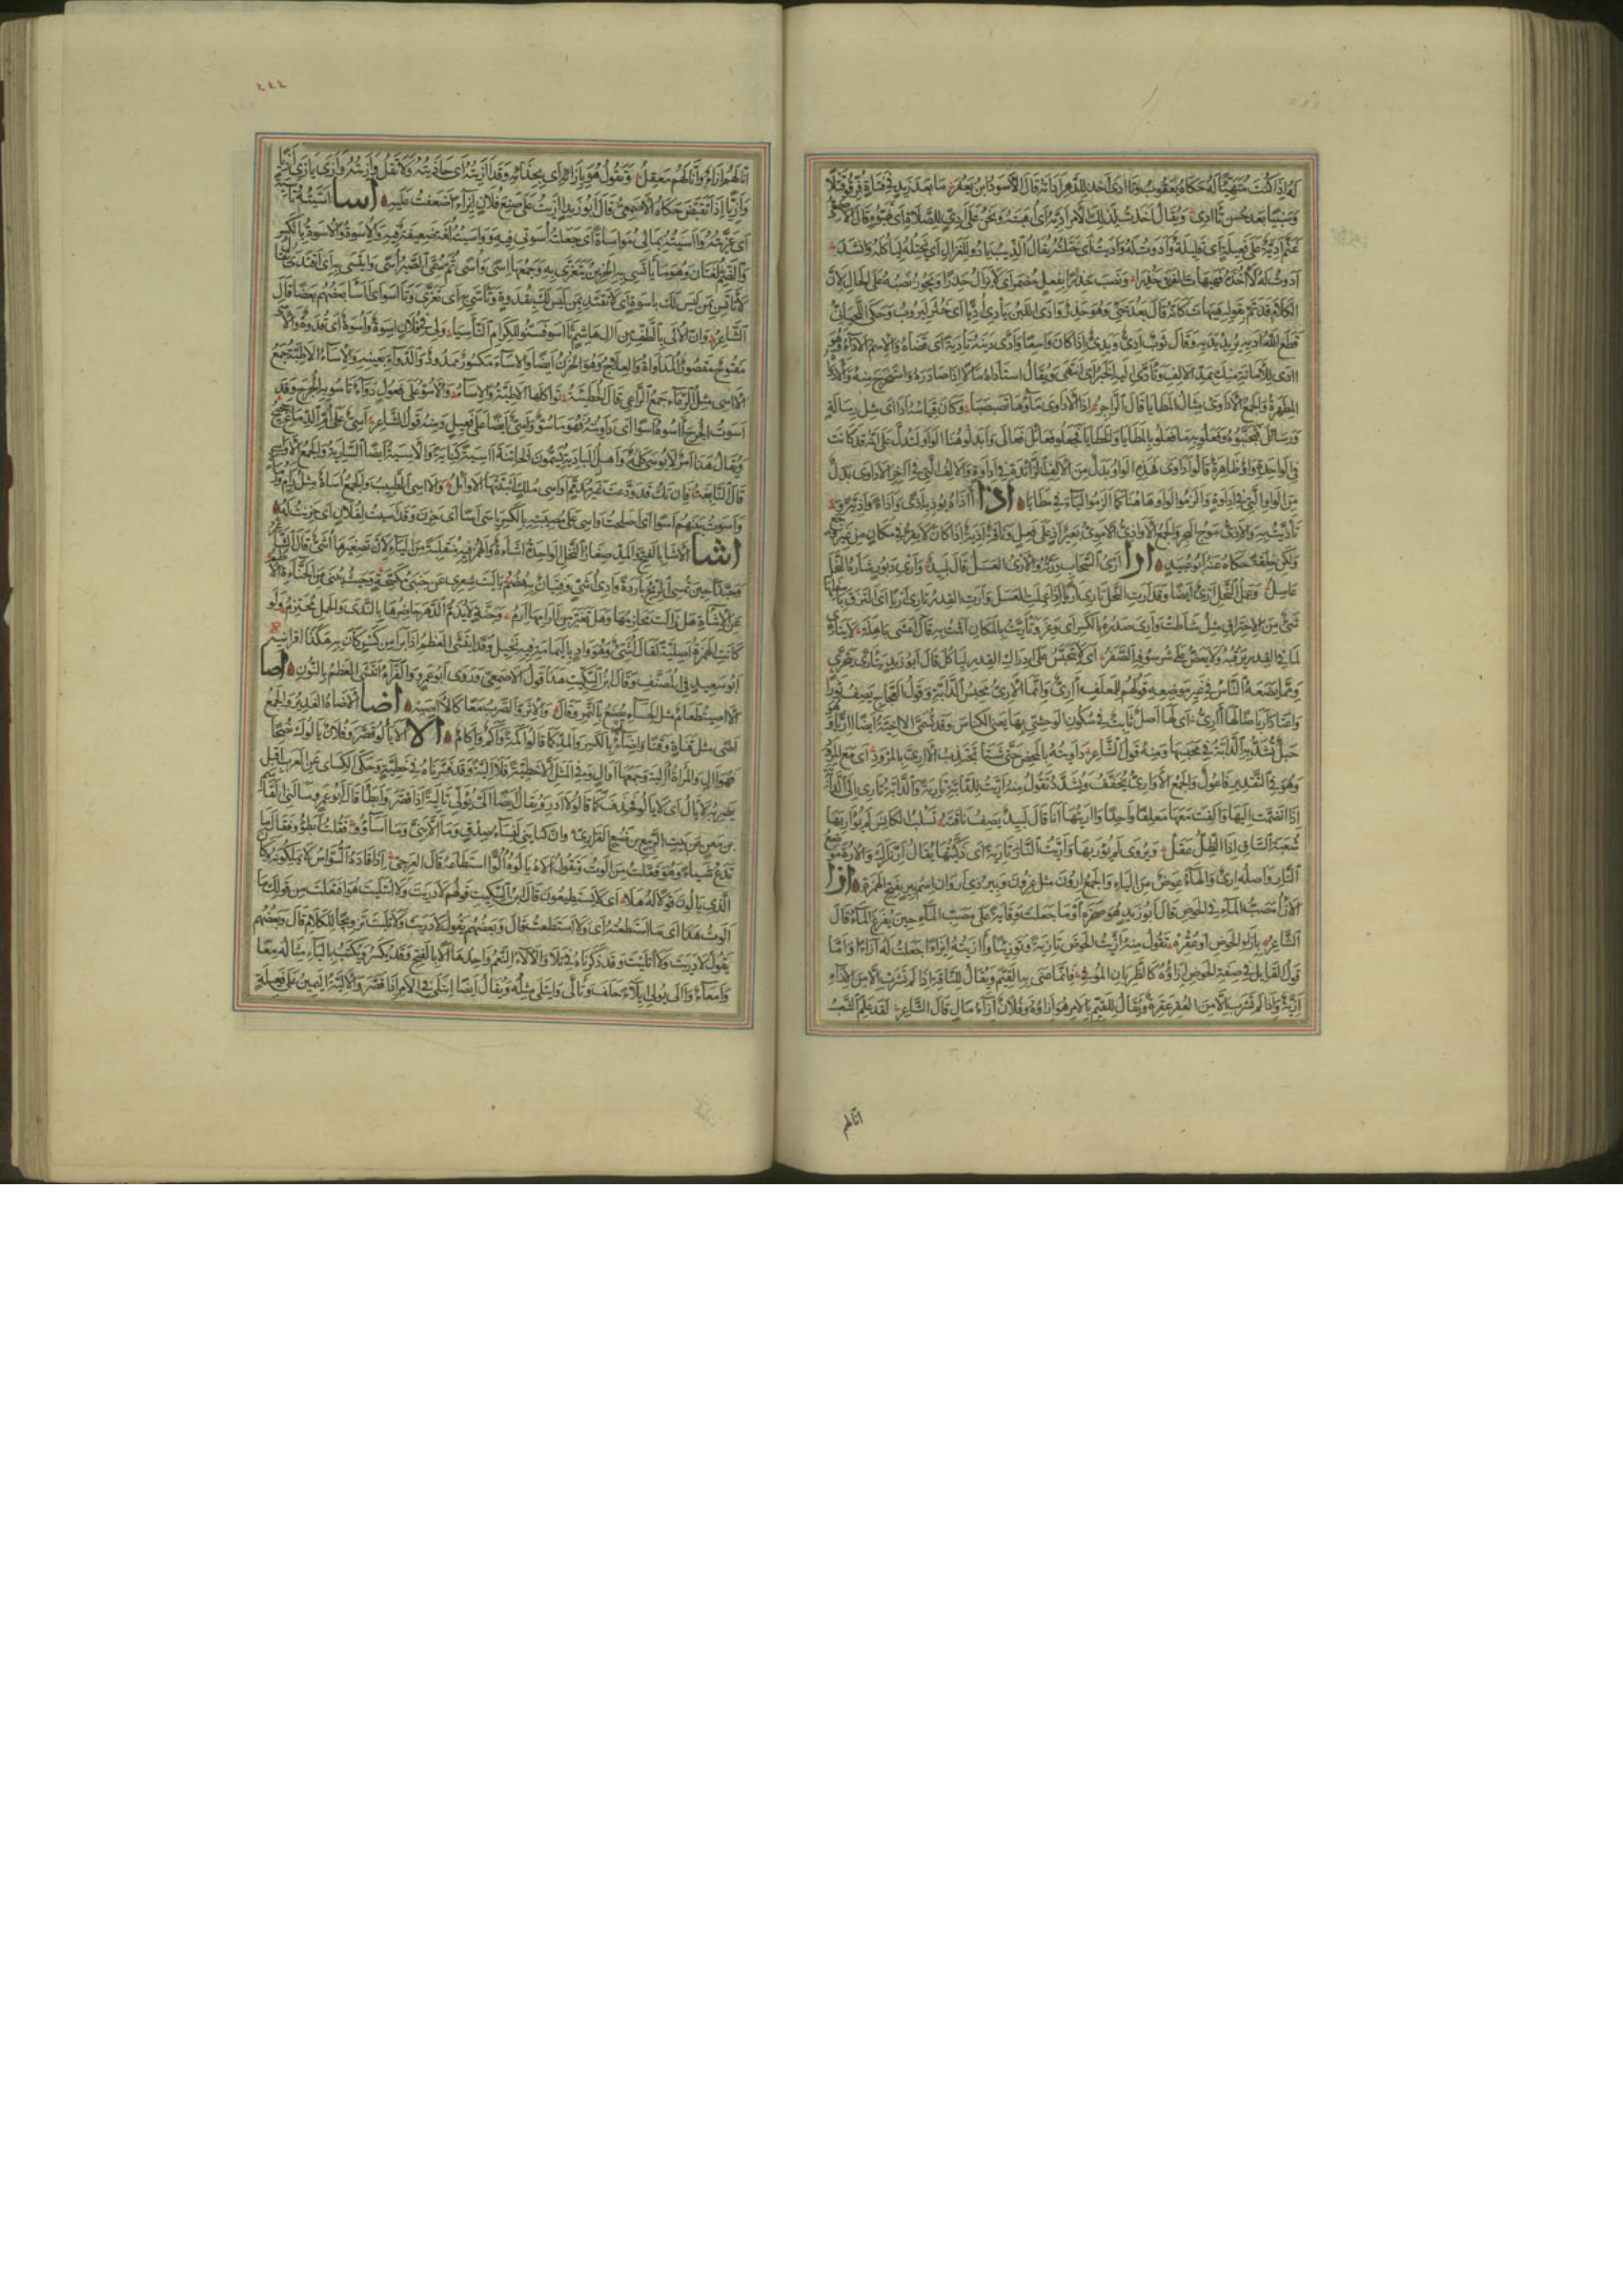 له إذا كنت متهيئا له حكاه يعقوب وتاادى اخذ للدهر اداته قال الأسود بن يعفر ما بعد زيد في فتاة فرقوا قتلا
وسبيا بعد حسن تاادى ويقال اخذت لذلك الأمر اديه أى أهبته ونحن على ادي للصلاة أى تهيؤ قال الأموى
غنم ادية على فعيلة أى قليلة وادوت له واديت أى ختلته يقال الذيب يادو للغزال أى يختله لياكله وانشد
ادوت له لآخذه فهيهات الفتى حذرا ونصب حذرا بفعل مضمر أى لا يزال حذرا ويجوز نصبه على الحال لان
الكلام قد تم بقوله فهيهات كانه قال بعد عنى وهو حذر وادى اللبن يادى أديا أى خثر ليروب وحكى اللحيانى
قطع الله اديه يريد يديه وقال ثوب ادى ويدى إذا كان واسعا وادى دينه تادية أى قضاه والاسم الاداء وهو
اادى للأمانة منك بمد الالف وتادى اليه الخبر أى انتهى ويقال استاداه مالا إذا صادره واستخرج منه والاداوة
المطهرة والجمع الاداوى مثال المطايا قال الراجز إذا الاداوى ماؤها تصبصبا وكان قياسه ادائى مثل رسالة
ورسائل فتجنبوه وفعلوا به ما فعلوا بالمطايا والخطايا فجعلوا فعائل فعالى وابدلوا هنا الواو لتدل على انه قد كانت
فى الواحدة واو ظاهرة قالوا اداوى فهذه الواو بدل من الالف الزائدة فى اداوة والالف التى فى اخر الاداوى بدل
من الواو التى فى اداوة والزموا الواو ها هنا كما الزموا الياء فى خطايا اذا آذاه يوذيه اذى واذاة واذية و
تاذيت به والاذى موج البحر والجمع الاواذى الاموى بعير اذ على فعل وناقة اذية إذا كان لا يقر فى مكان من غير وجع
ولكن خلقة حكاه عنه ابو عبيد ارا ارى السحاب درته والارى العسل قال لبيد وارى دبور شاره النحل
عاسل وعمل النحل ارى ايضا وقد ارت النحل تارى اريا إذا عملت العسل وارت القدر تارى اريا إذا التزق باسفلها
شئ من الاحتراق مثل شاطت وارى صدره بالكسر أى وغر وتاريت بالمكان اقمت به قال اعشى باهلة لا يتارى
لما فى القدر يرقبه ولا يعض على شرسوفه الصفر أى لا يتحبس على ادراك القدر لياكل قال ابو زيد يتارى يتحرى
ومما يضعه الناس فى غير موضعه قولهم للمعلف آرى وانما الآرى محبس الدابة وقول العجاج يصف ثورا
واعتاد ارباضا لها آرى أى لها اصل ثابت فى سكون الوحش بها يعنى الكناس وقد تسمى الاخية ايضا آريا وهو
حبل تشد به الدابة فى محبسها ومنه قول الشاعر داويته بالمحض حتى شتا يجتذب الآرى بالمرود أى مع المرود
وهو فى التقدير فاعول والجمع الاوارى يخفف ويشدد تقول منه اريت للدابة تارية والدابة تارى إلى الدابة
إذا انضمت إليها والفت معها معلفا واحدا وآريتها انا قال لبيد يصف ناقته تسلب الكانس لم يوأر بها
شعبة الساق إذا الظل عقل ويروى لم يؤر بها واريت النار تارية أى ذكيتها يقال ار نارك والارة موضع
النار واصله ارى والهاء عوض من الياء والجمع ارون مثل عزون وبير ذى اروان اسم بير بفتح الهمزة ازا
الازاء مصب الماء فى الحوض قال ابو زيد هو صخرة او ما جعلت وقاية على مصب الماء حين يفرغ الماء قال
الشاعر بازاء الحوض او عقره تقول منه ازيت الحوض تازية وتوزيئا وآزيته ايزاء إذا جعلت له ازاء واما
قول القايل فى صفة الحوض ازاؤه كالظربان الموفى فانما عنى به القيم ويقال للناقة إذا لم تشرب الا من الازاء
ازية وإذا لم تشرب الا من العقر عقرة ويقال للقيم بالامر هو ازاؤه وفلان ازاء مال قال الشاعر لقد علم الشعب
انا لهم
٤٤٤
انا لهم ازاء وانا لهم معقل وتقول هو بازائه أى بحذائه وقد آزيته أى حاذيته ولا تقل وازيته وازى يازى ازيا
وازيا إذا تقبض حكاه الاصمعى قال ابو زيد آزيت على صنيع فلان ايزاء أضعفت عليه اسا اسيته تاسية
أى عزيته وآسيته بمالى مواساة أى جعلته أسوتى فيه وواسيته لغة ضعيفة فيه والاسوة والاسوة بالكسر
والضم لغتان وهو ما ياتسى به الحزين يتعزى به وجمعها اسى واسى ثم سمى الصبر أسى وايتسى به أى اقتدى به يقال
لا تاتس بمن ليس لك باسوة أى لا تقتد بمن ليس لك بقدوة وتاسى به أى تعزى وتآسوا أى آسا بعضهم بعضا قال
الشاعر وان الالى بالطف من ال هاشم تآسوا فسنوا للكرام التآسيا ولى فى فلان اسوة وأسوة أى قدوة والاسى
مفتوح مقصور المداواة والعلاج وهو الحزن ايضا والاساء مكسور ممدود الدواء بعينه والاساء الاطبة جمع
الآسى مثل الرعاء جمع الراعى قال الحطيئة تواكلها الاطبة والاساء والاسو على فعول دواء تاسو به الجرح وقد
اسوت الجرح آسوه اسوا أى داويته فهو ماسو واسى ايضا على فعيل ومنه قول الشاعر اسى على أم الدماغ حجيج
ويقال هذا امر لا يوسى كلمه واهل البادية يسمون الخاتنة آسية كناية والآسية ايضا السارية والجمع الاواسى
قال النابغة فان تك قد ودعت غير مذمم اواسى ملك اثبتتها الاوائل والآسى الطبيب والجمع أساة مثل رام ورماة
واسوت بينهم اسوا أى اصلحت واسى على مصيبته بالكسر ياسى اسا أى حزن وقد اسيت لفلان أى حزنت له
اشا الاشاء بالفتح والمد صغار النخل الواحدة اشاءة والهمزة فيه منقلبة من الياء لان تصغيرها أشى قال الشاعر
وحبذا حين تمسى الريح باردة وادى أشى وفتيان به هضم يا ليت شعرى عن جنبى مكشحة وحيث تبنى من الحناءة الاطم
عن الاشاءة هل زالت مخارمها وهل تغير من آرامها ارم وجنة لا يذم الدهر حاضرها بالندى والحمل محتزم ولو
كانت الهمزة اصلية لقال أشئ وهو واد باليمامة فيه نخيل وقد ايتشى العظم إذا برا من كسر كان به هكذا اقرانيه
ابو سعيد فى المصنف وقال ابن السكيت هذا قول الاصمعى وروى ابو عمرو والفراء انتشى العظم بالنون اصا
الآصية طعام مثل الحساء يصنع بالتمر وقال والاثر والصرب معا كالآصية اضا الاضاة الغدير والجمع
اضى مثل قناة وقنا واضاء بالكسر والمد كما قالوا اكمة واكم واكام الا الا يالو قصر وفلان لا يالوك نصحا
فهو آل والمراة آلية وجمعها اوال وفى المثل إلا حظية فلا الية وقد فسرناه فى حظية وحكى الكسائى عن العرب اقبل
يضربه لا يال أى لا يالو فحذف كما قالوا لا ادر ويقال ايضا الى يولى تالية إذا قصر وابطا قال ابو عمرو سالنى القاسم
بن معن عن بيت الربيع بن ضبع الفزارى وان كنائنى لنساء صدق وما ألى بنى وما اساؤوا فقلت ابطؤا فقال ما
تدع شيئا وهو فعلت من الوت وتقول آلاه يالوه ألوا استطاعه قال العرجى إذا قاده السواس لا يملكونه وكان
الذى يالون قولا له هلا أى لا يستطيعون قال ابن السكيت قولهم لا دريت ولا ائتليت هو افتعلت من قولك ما
الوت هذا أى ما استطعته أى ولا استطعت قال وبعضهم يقول لا دريت ولا تليت تزويجا للكلام قال وبعضهم
يقول لا دريت ولا اتليت وقد ذكرناه فى تلا والآلاء النعم واحدها الا بالفتح وقد يكسر ويكتب بالياء مثاله معا
وامعاء وآلى يولى ايلاء حلف وتالى وايتلى مثله ويقال ايضا ايتلى فى الامر إذا قصر والالية اليمين على فعيلة